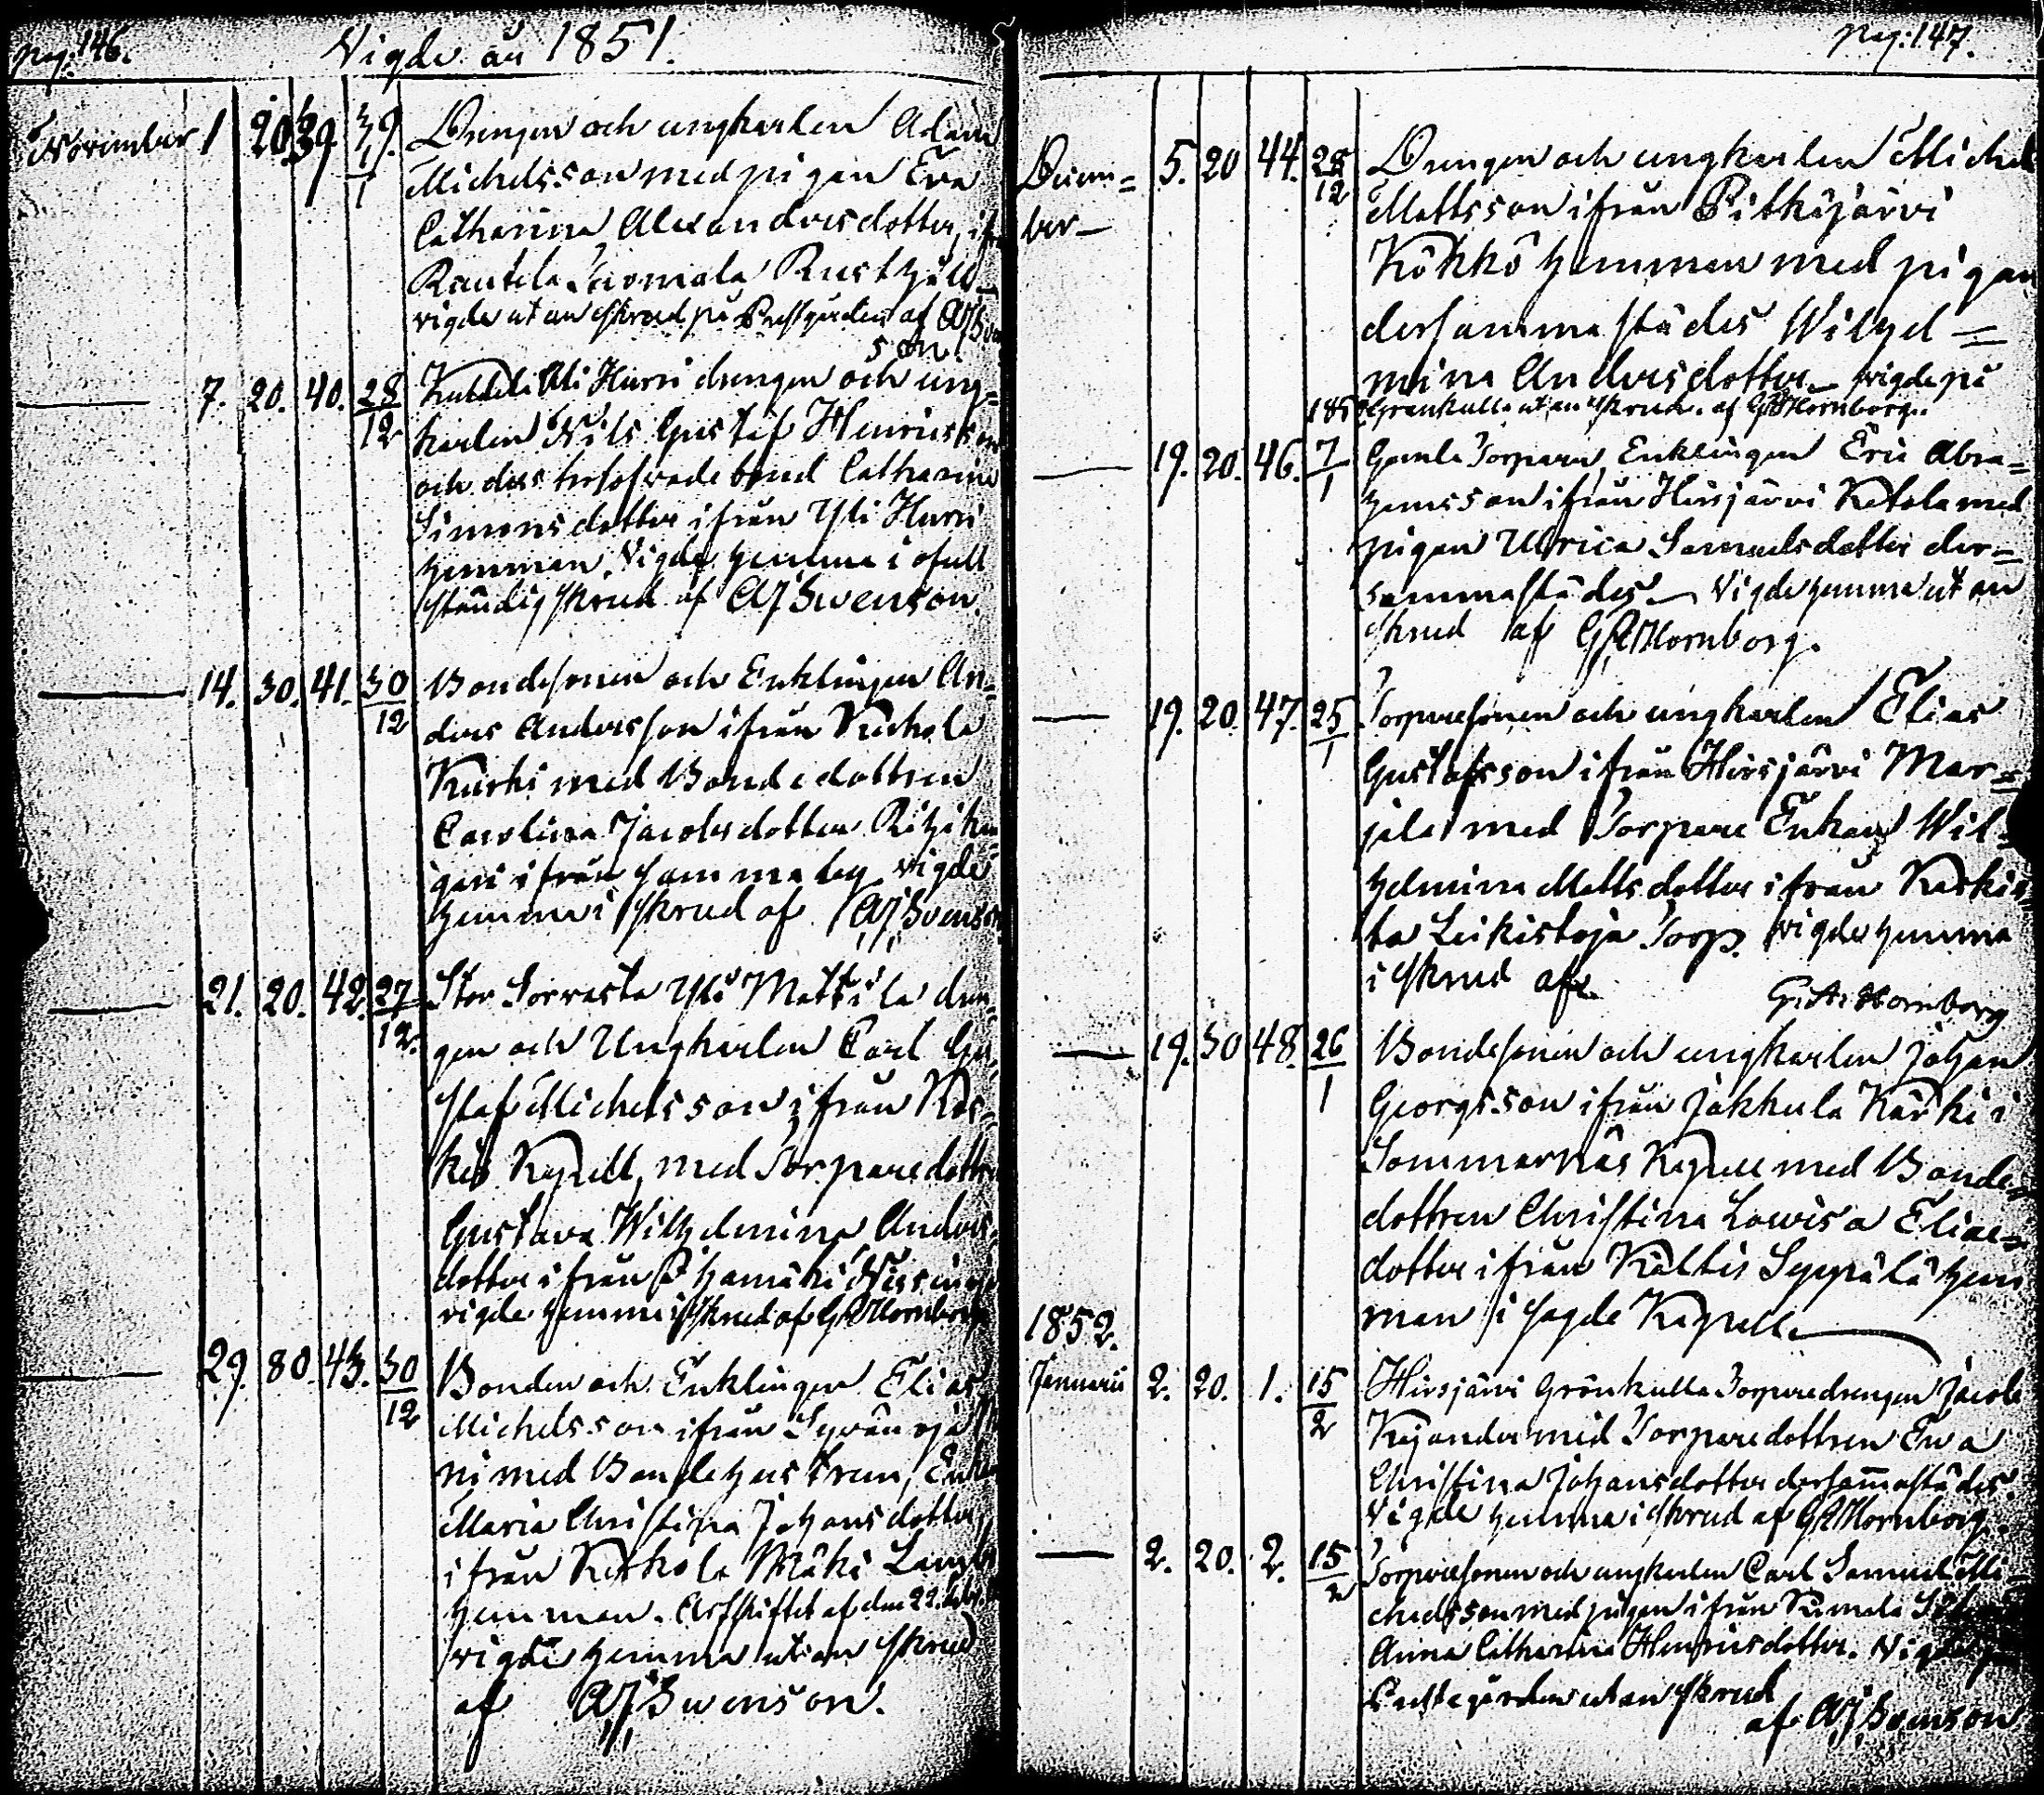 pag: 146.
Vigde år 1851.
November 1 20 39. 3/1 9. Drengen och ungkarlen Adam
Michelsson med pigan Eva
Catharina Alexandersdotter, ifrån
Rautela Rusthåll
vigde utan skrud på Prestgården af AJSven
son.
7. 20. 40. 28/12 Yli Hurri drengen och ung=
karlen Nils Gustaf Henricsson
och dess trolofvade brud Catharina
Simonsdotter ifrån Yli Hurri
hemman. Vigde hemma i ofull
ständig skrud af AJSwenson.
14. 30. 41. 30/12 Bondesonen och Enklingen An=
ders Andersson ifrån Kerkola
Kurki med Bondedottren
Carolina Jacobsdotter
ifrån samma by vigde
hemma i skrud af AJSvenson
21. 20. 42. 27/12. Stor Sorvasta Yli Mattila dren=
gen och Ungkarlen Carl Gu=
staf Michelsson ifrån Kos=
kis Kapell, med Torparedottren
Gustava Wilhelmina Anders
dotter ifrån
vigde hemma i skrud af GAHornborg
29. 80. 43. 30/12 Bonden och Enklingen Elias
Michelsson ifrån Syvänoja
med Bondehustrun, Enkan
Maria Christina Johansdotter,
ifrån Kerkola Mäki
hemman. Arfskiftet af den 22.
vigde hemma utan skrud
af AJSwenson.
pag: 147.
Decem= 5. 20 44. 28/12 Drengen och ungkarlen Michel
ber Mattsson ifrån Pitkäjärvi
Kökkö hemman med pigan
dersammastädes Wilhel=
mina Andersdotter vigde på
Grankulla utan skrud. af GAHornborg.
19. 20. 46. 7/1 Gamla Torparen, Enklingen Eric Abra=
hamsson ifrån Hirsjärvi Ketola med
pigan Ulrica Samuelsdotter der=
sammastädes Vigde hemma utan
skrud af GAHornborg.
19. 20. 47. 25/1 Torparesonen och ungkarlen Elias
Gustafsson ifrån Hirsjärvi Mar=
jala med Torpare Enkan Wil=
helmina Mattsdotter ifrån
Leikistoja Torp. vigde hemma
i skrud af
G. A. Hornborg
19. 30 48. 26/1 Bondesonen och ungkarlen Johan
Georgsson ifrån Jakkula Kärki i
Sommarnäs Kapell med Bonde=
dottren Christina Lowisa Elias=
dotter ifrån Kältis Seppälä hem
man i sagde Kapell
1852.
Januarii 2. 20. 1. 15/2 Hirsjärvi Grönkulla Torparedrengen Jacob
Kejonder med Torparedottren Eva
Christina Johansdotter dersammastädes.
Vigde hemma i skrud af GAHornborg.
2. 20. 2. 15/2 Torparesonen och ungkarlen Carl Samuel Mi=
chelsson med pigan ifrån
Anna Catharina Henricsdotter. Vigde på
Prestegården utan skrud
af AJSvenson